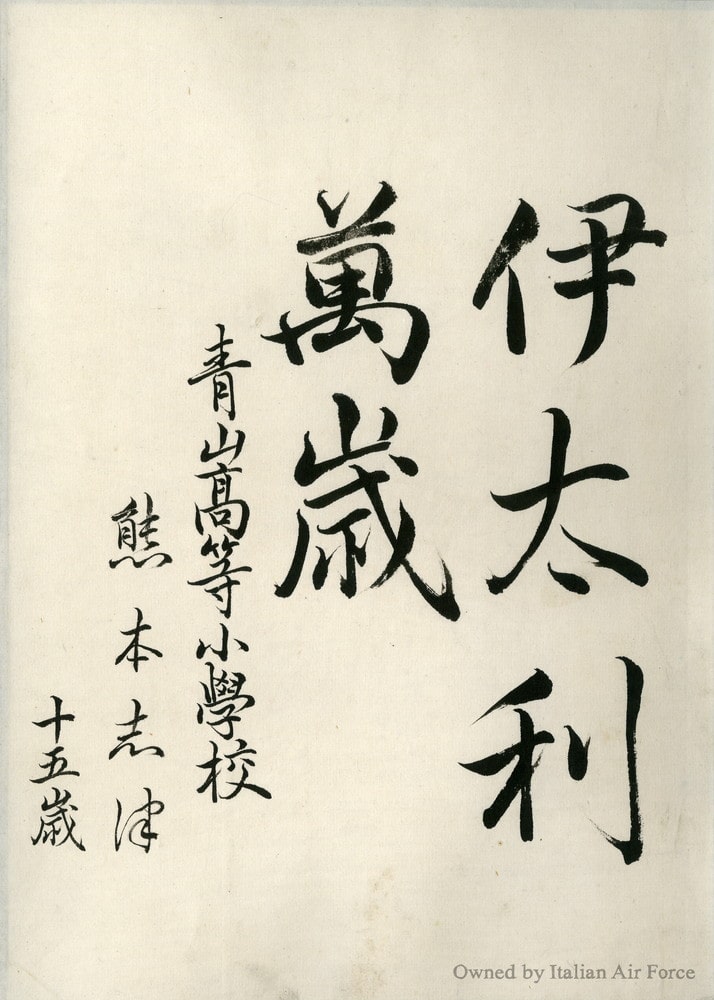 伊太利
萬歳
青山高等小學校
熊本志津
十五歳
Owned by Italian Air Force